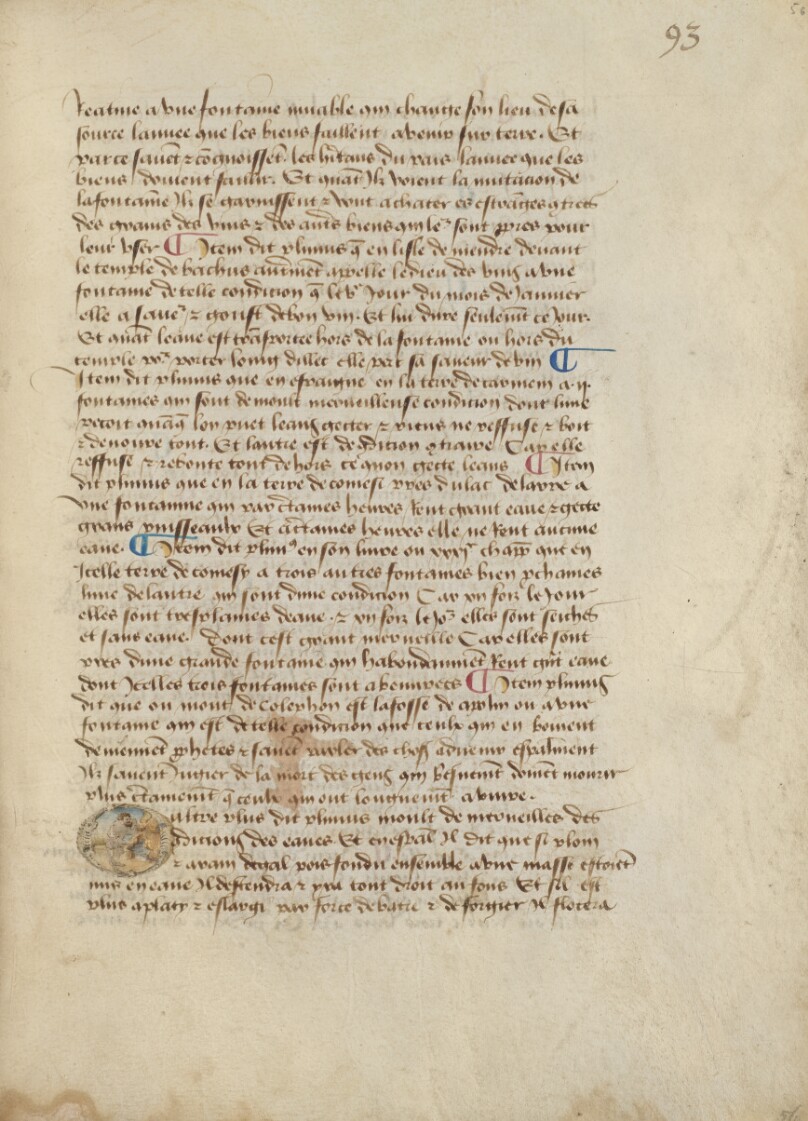 93
Reatine a vne fontaine muable qui change son lieu de sa
source lannee que les biens faillent a venir sur terre. Et
par ce sauēt & cōgnoissēt les hītans du pais lannee que les
biens doiuent faillir. Et quāt Ilz voient la mutacion de
la fontaine Ilz se garnissent & vont achater es estrāges
des grains des vins & des autēs biens qui le sont pour
leur vser ¶ Item dit plinius q̄ en lisle de mendre deuant
le temple de bachus autmēt appelle le dieu des vins a vne
fontaine de telle condition q̄ le Jour du mois de Januier
elle a saue & goust de bon vin. Et lui dure seulemt ce Jour.
Et quāt leaue est trāsportee hors de la fontaine ou hors du
temple porter loing dillec elle pert sa saueur de vin ¶
Item dit plinius que en espaigne en la terre de a .ij.
fontaines qui sont de moult merueilleuse condition dont lune
recoit quāq̄ lon puet leans gecter & riens ne reffuse & boit
& deuoure tout. Et lautre est de 9dicion 9traire Car elle
reffuse & reboute tout dehors ce quon gecte leans ¶ Item
dit plinius que en la terre de comesi pres du lac de layre a
vne fontainne qui par c̄taines heures rent grant eaue & gecte
grans ruisseaulx Et a c̄taines heures elle ne rent aucune
eaue. ¶ Item dit plini9 en son liure ou xxxj chapp que en
Icelle terre de comesy a trois autres fontaines bien pchaines
lune de lautre qui sont dune condition Car vn foiz le Jour
elles sont tresplaines deaue. & vn foiz le Jo elles sont seiches
et sans eaue. Dont cest grant merueille Car elles sont
pres dune grande fontaine qui habondāmēt rent grāt eaue
dont Icelles trois fontaines sont abeuurees ¶ Item plinius
dit que ou mont de Colophon est la fosse de apolin ou a vne
fontaine qui est de telle condition que ceulx qui en boiuent
deuiennēt pphetes & sauēt parler des choses aduenir espālment
Ilz sauent Jugier de la mort des gens qui doiuēt mourir
plus c̄tainemt q̄ ceulx qui ont longuemt a viure.
oultre plus dit plinius moult de merueilles des
9dicions des eaues Et en espāl Il dit que si plom
& arain degal pois fondu ensemble a vne masse estoiēt
mis en eaue Il descendra & yra tout droit au fons Et sil est
plus aplaty & eslargi par force de batre & de forgier Il flotera